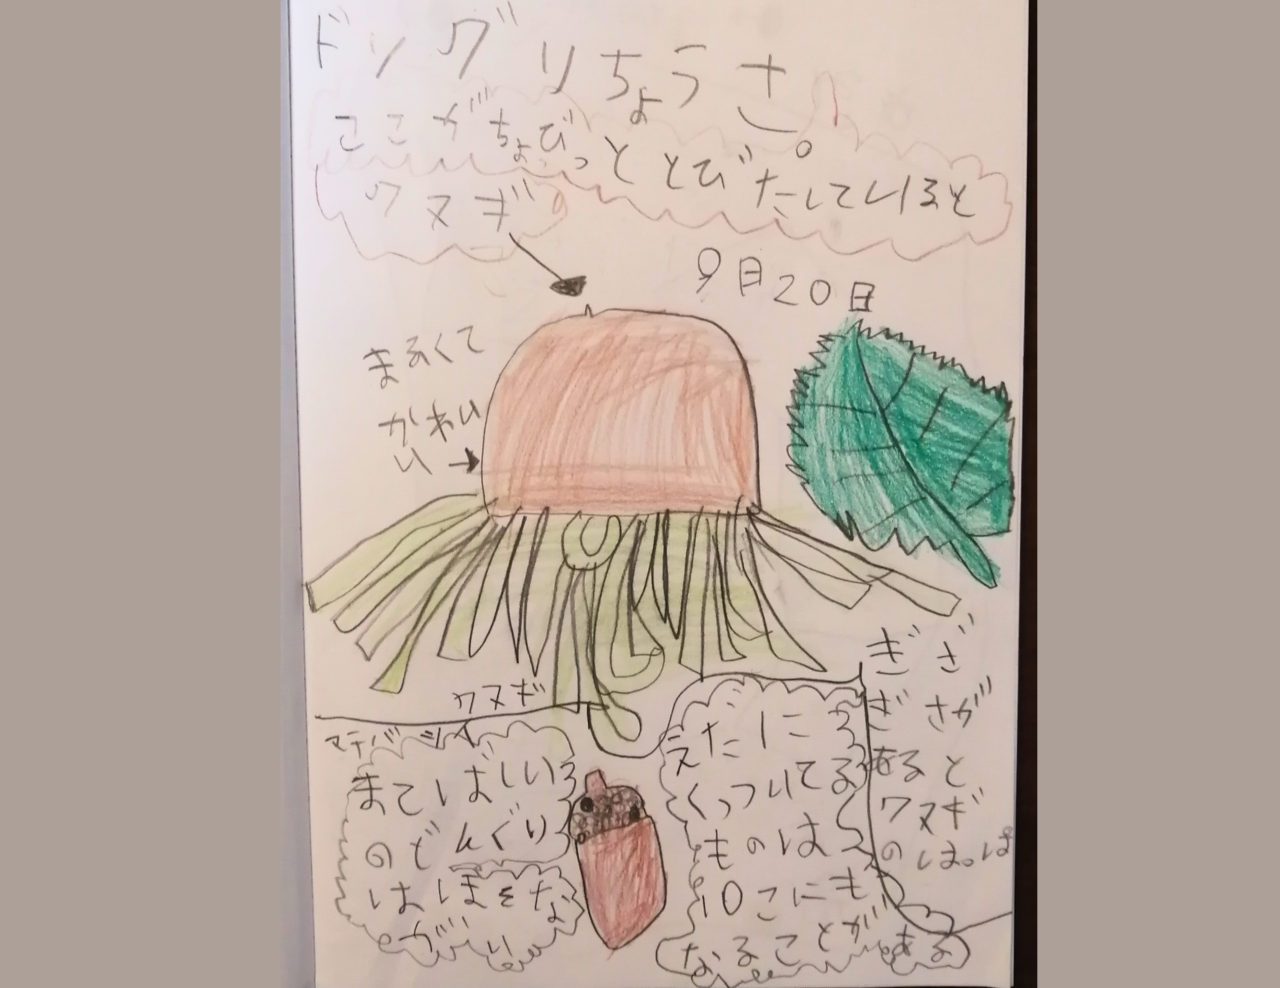 ドングリちょうさ
ここがちょびっととびだしていると
クヌギ
9月20日
まるくて
かわい
い
クヌギ
ぎざ
ぎざが
あると
クヌギ
のはっぱ
マテバシイ
まてばしい
のどんぐり
はほそな
がい
えだに
くっついてる
ものは
10こにも
なることがある